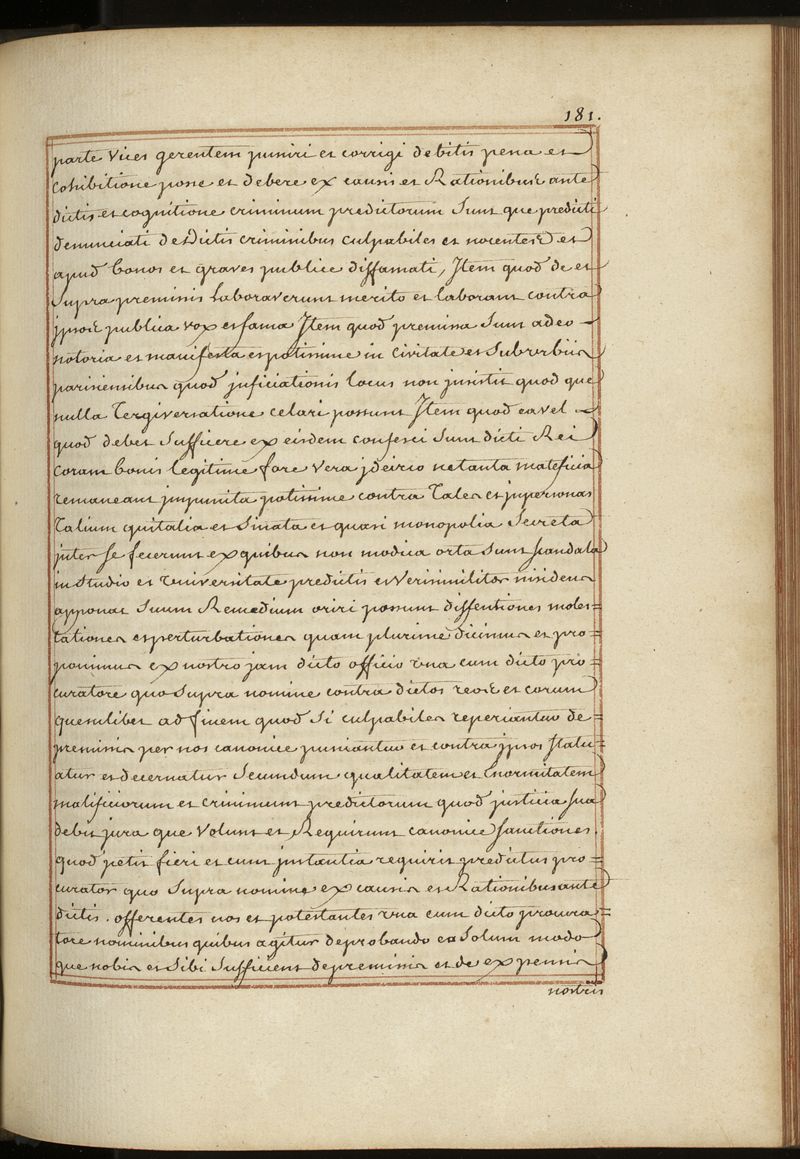 181.
parte vices gerentem puniri et corrigi debitis pena et
cohibitione posse et debere ex causis et Rationibus ante
dictis et cognitione criminum predictorum Sunt que predicti
denunciati de dictis criminibus culpabiles et nocentes et
apud bonos et graves publice diffamati, Item quod de et
Supra premissis Laboraverunt merito et laborant contra
ipsos publica vox et fama Item quod premissa Sunt adeo
notoria et manifesta et potissime in Civitate et Suburbiis
parisiensibus quod inficiationis locus non insistit quod que
nulla Tergiversatione celari possunt Item quod ea vel
quod debet Sufficere ex eisdem confessi Sunt dicti Rei
Coram bonis legitime fore vera idcirco ne tanta maleficia
remaneant impunita potissime contra Tales et in personas
Talium qui talia et Sinata et quasi monopolia Secreta
inter se fecerunt ex quibus non modica orta Sunt scandala
in Studio et Universitate predictis et Verisimiliter nisi deus
apponat Suum Remedium oriri possunt dissentiones moles=
tationes et perturbationes quam plurime dicimus et pro=
ponimus ex nostro jam dicto officio una cum dicto pro=
curatore quo Supra nomine contra dictos reos et eorum
quemlibet ad finem quod Si culpabiles reperiantur de=
premissis per nos canonice puniantur et contra ipsos statu=
atur et decernatur Secundum qualitatem et Enormitatem
malificiorum et criminum predictorum quod justicia sua
debit jura que Volunt et Requirunt canonice sanctiones.
quod petit fieri et cum instantia requirit predictus pro=
curator quo Supra nomine ex causis et Rationibus ante
dictis. offerentes nos et potestantes una cum dicto procura=
tore nominibus quibus agitur de probando ea Solum modo
que nobis et Sibi Sufficient de premissis et de expensis
nostris